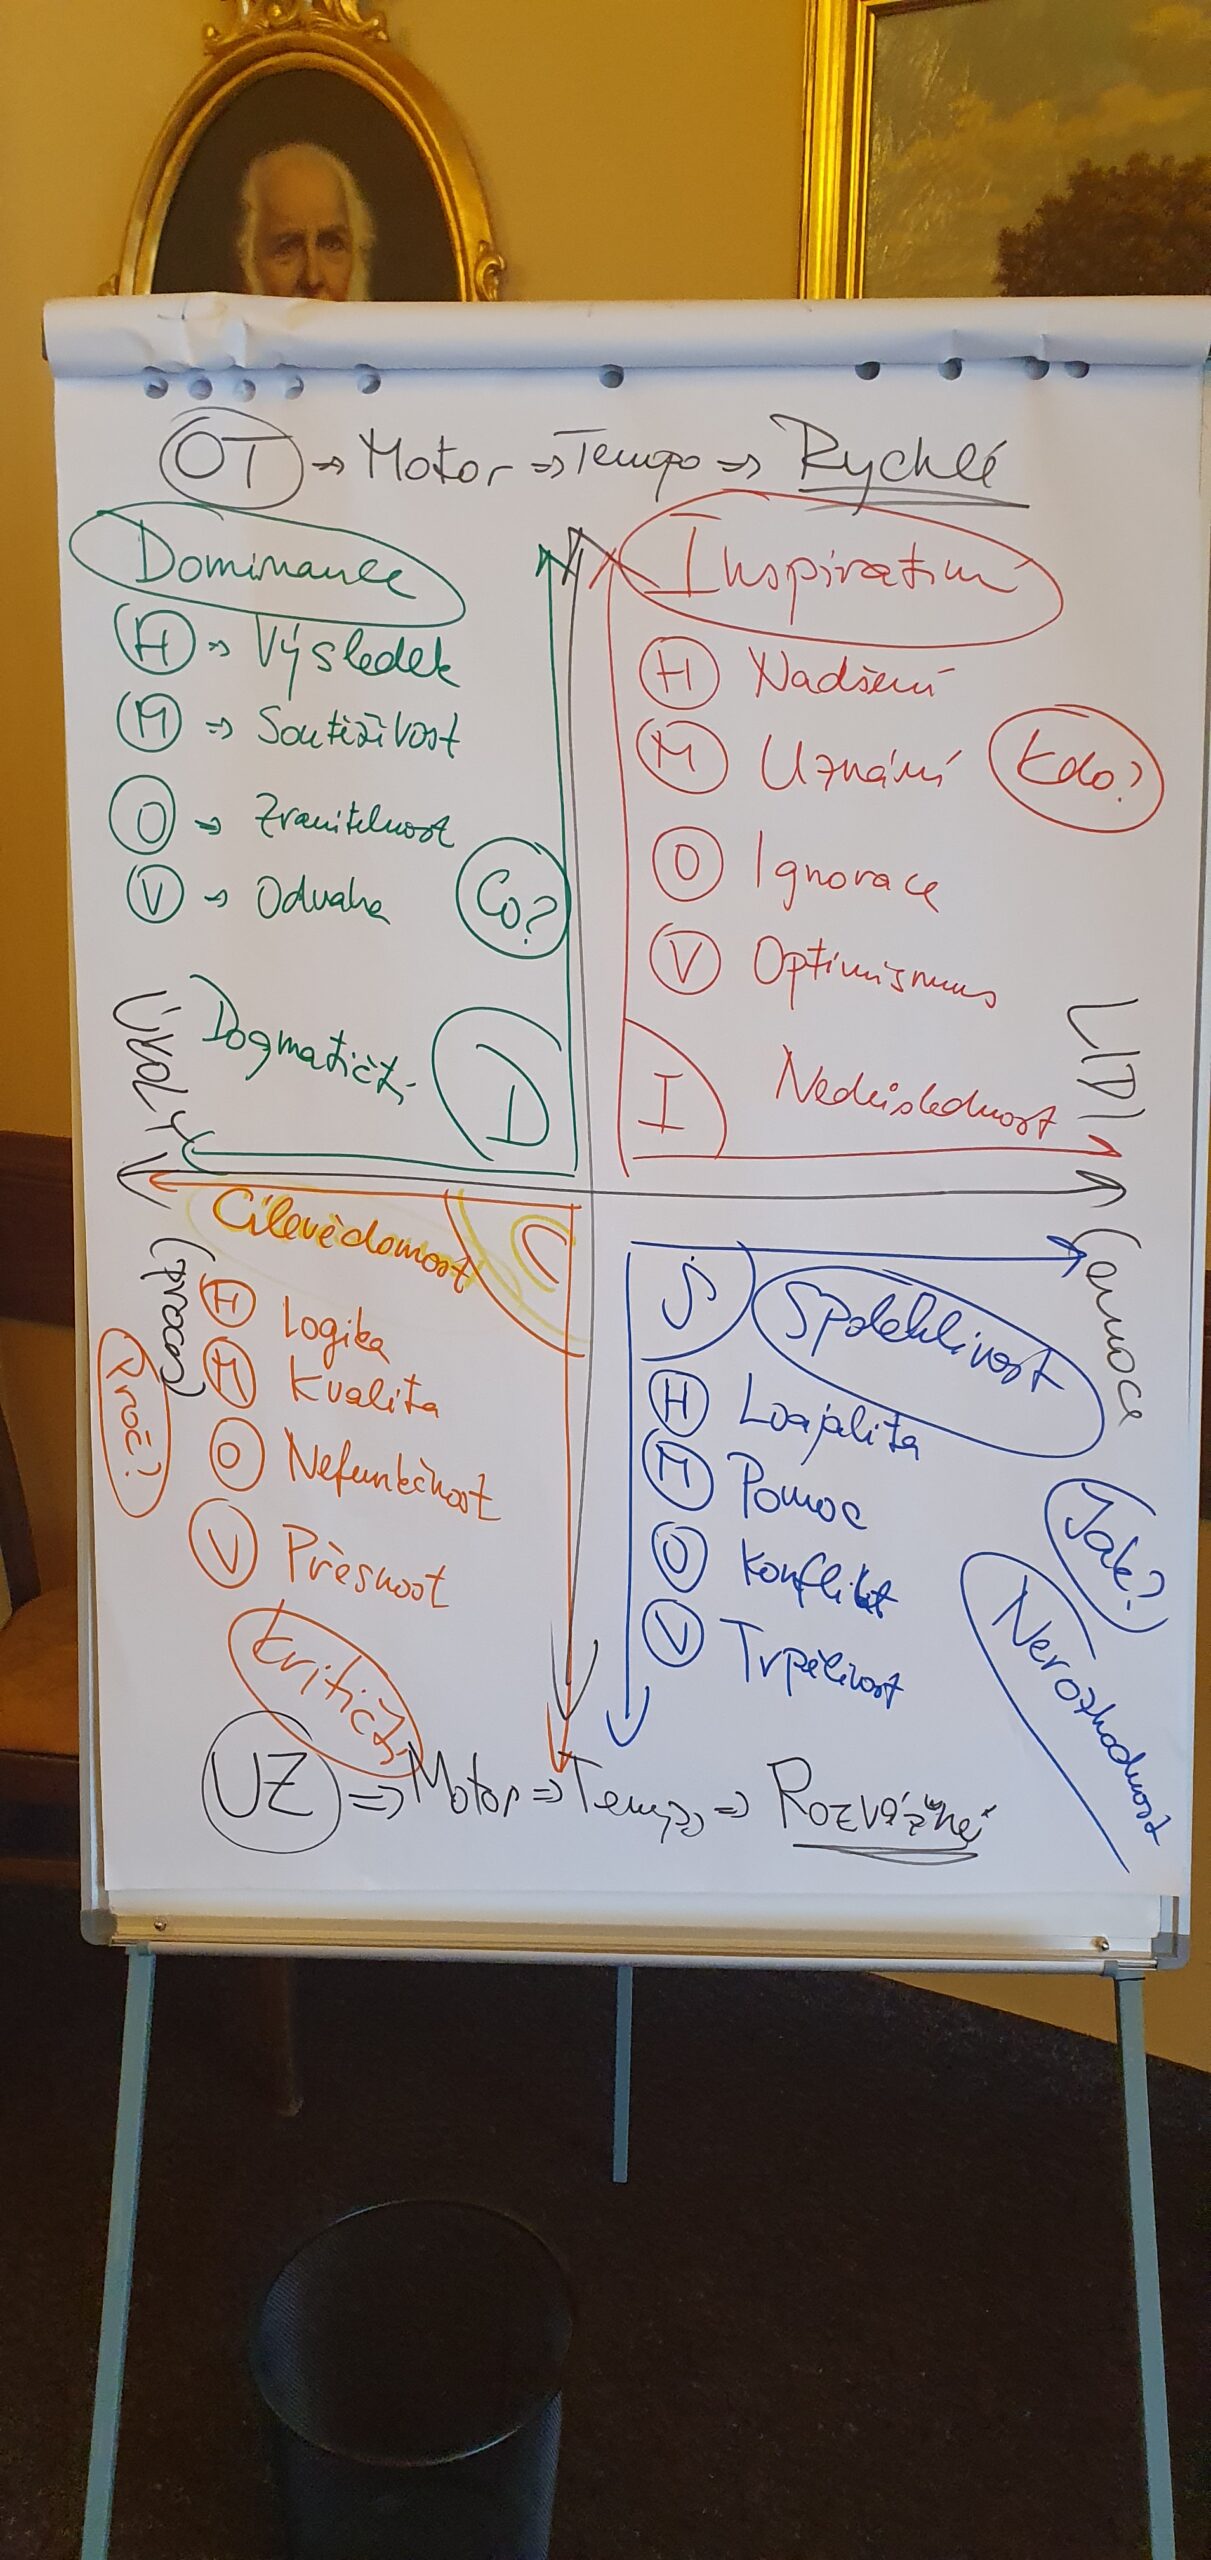 OT => Motor => Tempo => Rychlé
Dominance
H => Výsledek
M => Soutěživost
O => Zranitelnost
V => Odvaha
Co?
Dogmatičtí
D
Inspirativní
H Nadšení
M Uznání
Kdo?
O Ignorace
V Optimismus
I Nedůslednost
ÚKOLY
(práce)
LIDI
(emoce
Cílevědomost C
H Logika
M Kvalita
O Nefunkčnost
V Přesnost
Proč?
Kritičtí
S Spolehlivost
H Loajalita
M Pomoc
O Konflikt
V Trpělivost
Jak?
Nerozhodnost
UZ => Motor => Tempo => Rozvážné